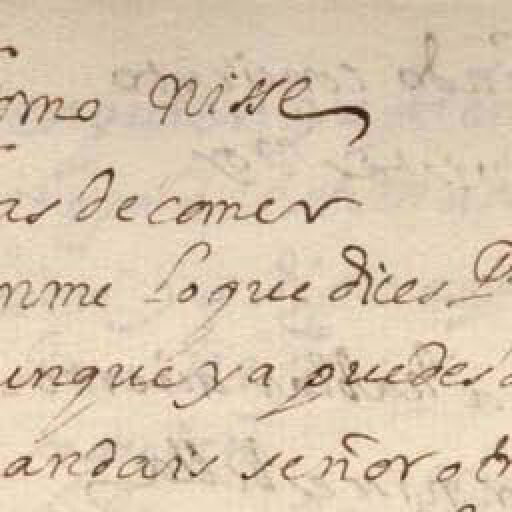 omo nisse
as de comer
mme lo que dices
unque ya puedes
andais señor ot